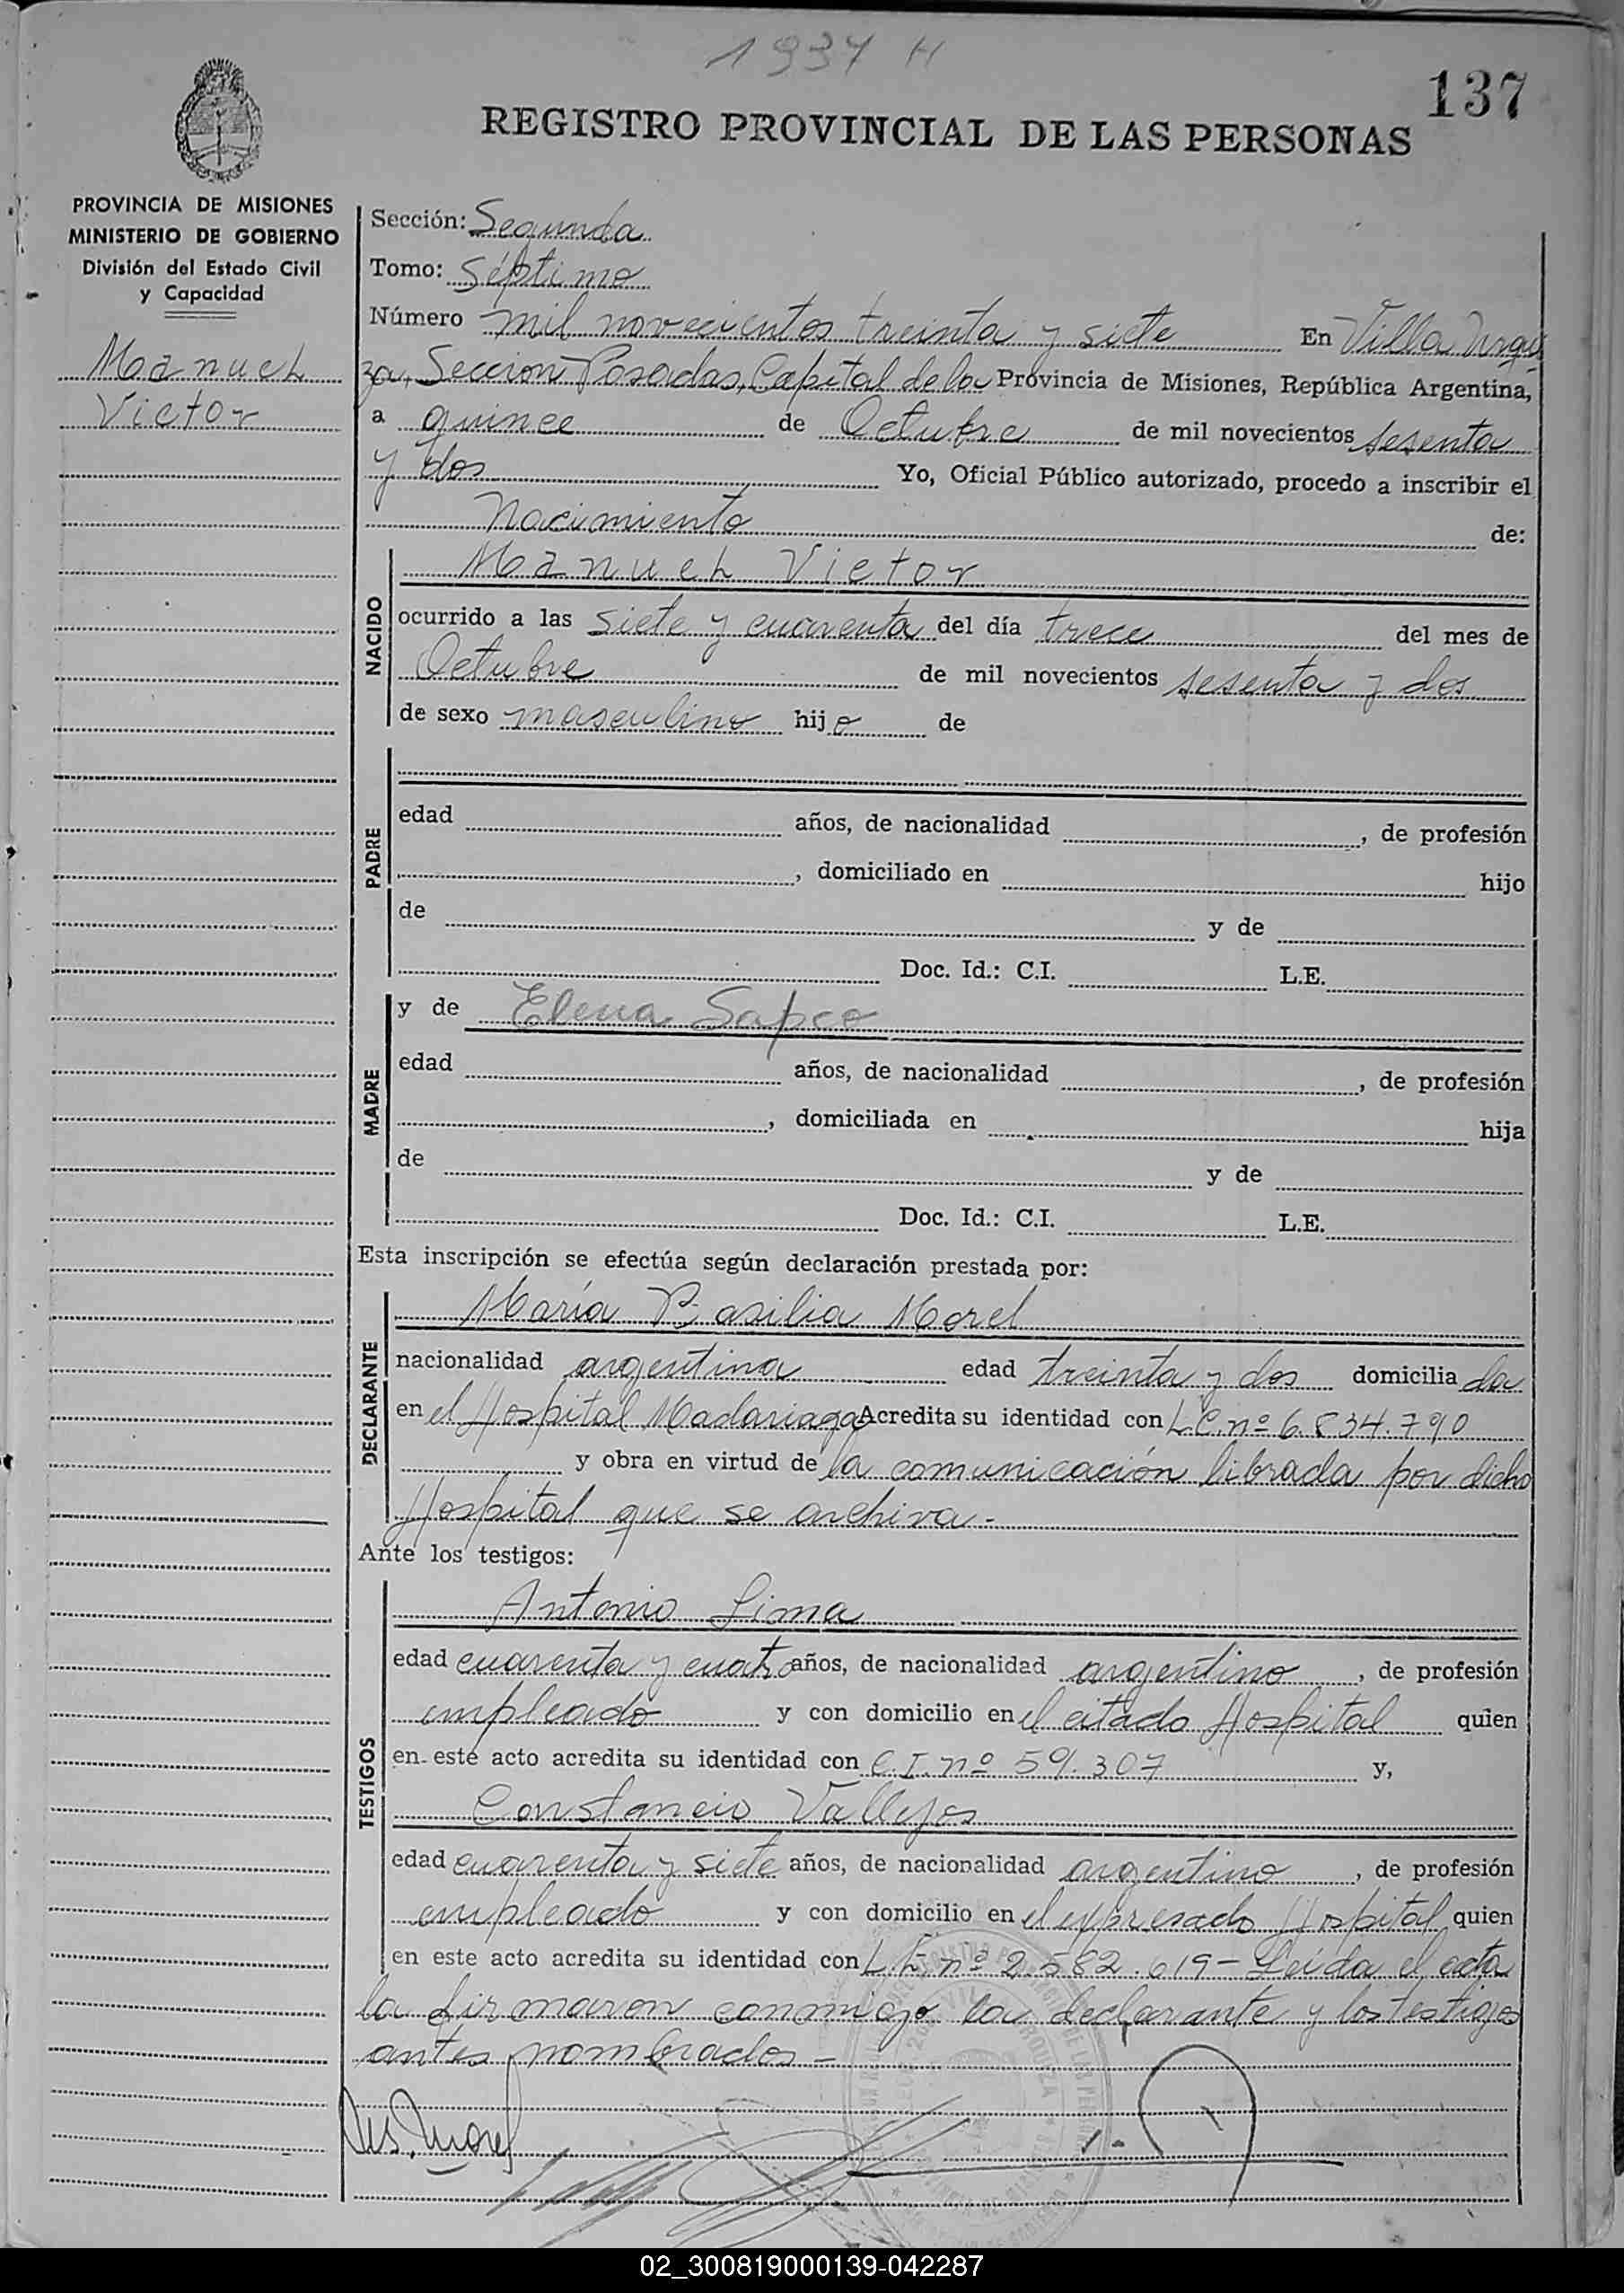 1937 H
137
REGISTRO PROVINCIAL DE LAS PERSONAS
PROVINCIA DE MISIONES
MINISTERIO DE GOBIERNO
División del Estado Civil
y Capacidad
Manuel
Victor
Sección: Segunda
Tomo: Séptimo
Número mil novecientos treinta y siete En Villa Urqui
za, Seccion Posadas, Capital de la Provincia de Misiones, República Argentina,
a quince de Octubre de mil novecientos sesenta
y dos Yo, Oficial Público autorizado, procedo a inscribir el
Nacimiento de:
Manuel Victor
NACIDO
ocurrido a las siete y cuarenta del día trece del mes de
Octubre de mil novecientos sesenta y dos
de sexo masculino hijo de
PADRE
edad años, de nacionalidad , de profesión
, domiciliado en hijo
de y de
Doc. Id.: C.I. L.E.
MADRE
y de Elena Sapco
edad años, de nacionalidad , de profesión
, domiciliada en hija
de y de
Doc. Id.: C.I. L.E.
Esta inscripción se efectúa según declaración prestada por:
DECLARANTE
María Basilia Morel
nacionalidad argentina edad treinta y dos domiciliada
en el Hospital Madariaga Acredita su identidad con L.C. nº 6.834.790
y obra en virtud de la comunicación librada por dicho
Hospital que se archiva.-
Ante los testigos:
TESTIGOS
Antonio Lima
edad cuarenta y cuatro años, de nacionalidad argentino, de profesión
empleado y con domicilio en el citado Hospital quien
en este acto acredita su identidad con C.I. nº 59.307 y,
Constancio Vallejos
edad cuarenta y siete años, de nacionalidad argentino, de profesión
empleado y con domicilio en el expresado Hospital quien
en este acto acredita su identidad con L.E. nº 2.582.619- Leída el acta
la firmaron conmigo la declarante y los testigos
antes nombrados-
Morel
02_300819000139-042287